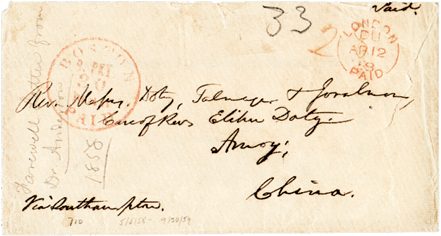 Paid.
33
2
LONDON
AP 12
PAID
BOSTON
PAID
Farewell letter from
Dr Anderson
1858
Rev. Messrs. Doty, Talmage & Joralmon,
Care of Rev. Elihu Doty.
Amoy,
China.
Via Southampton.